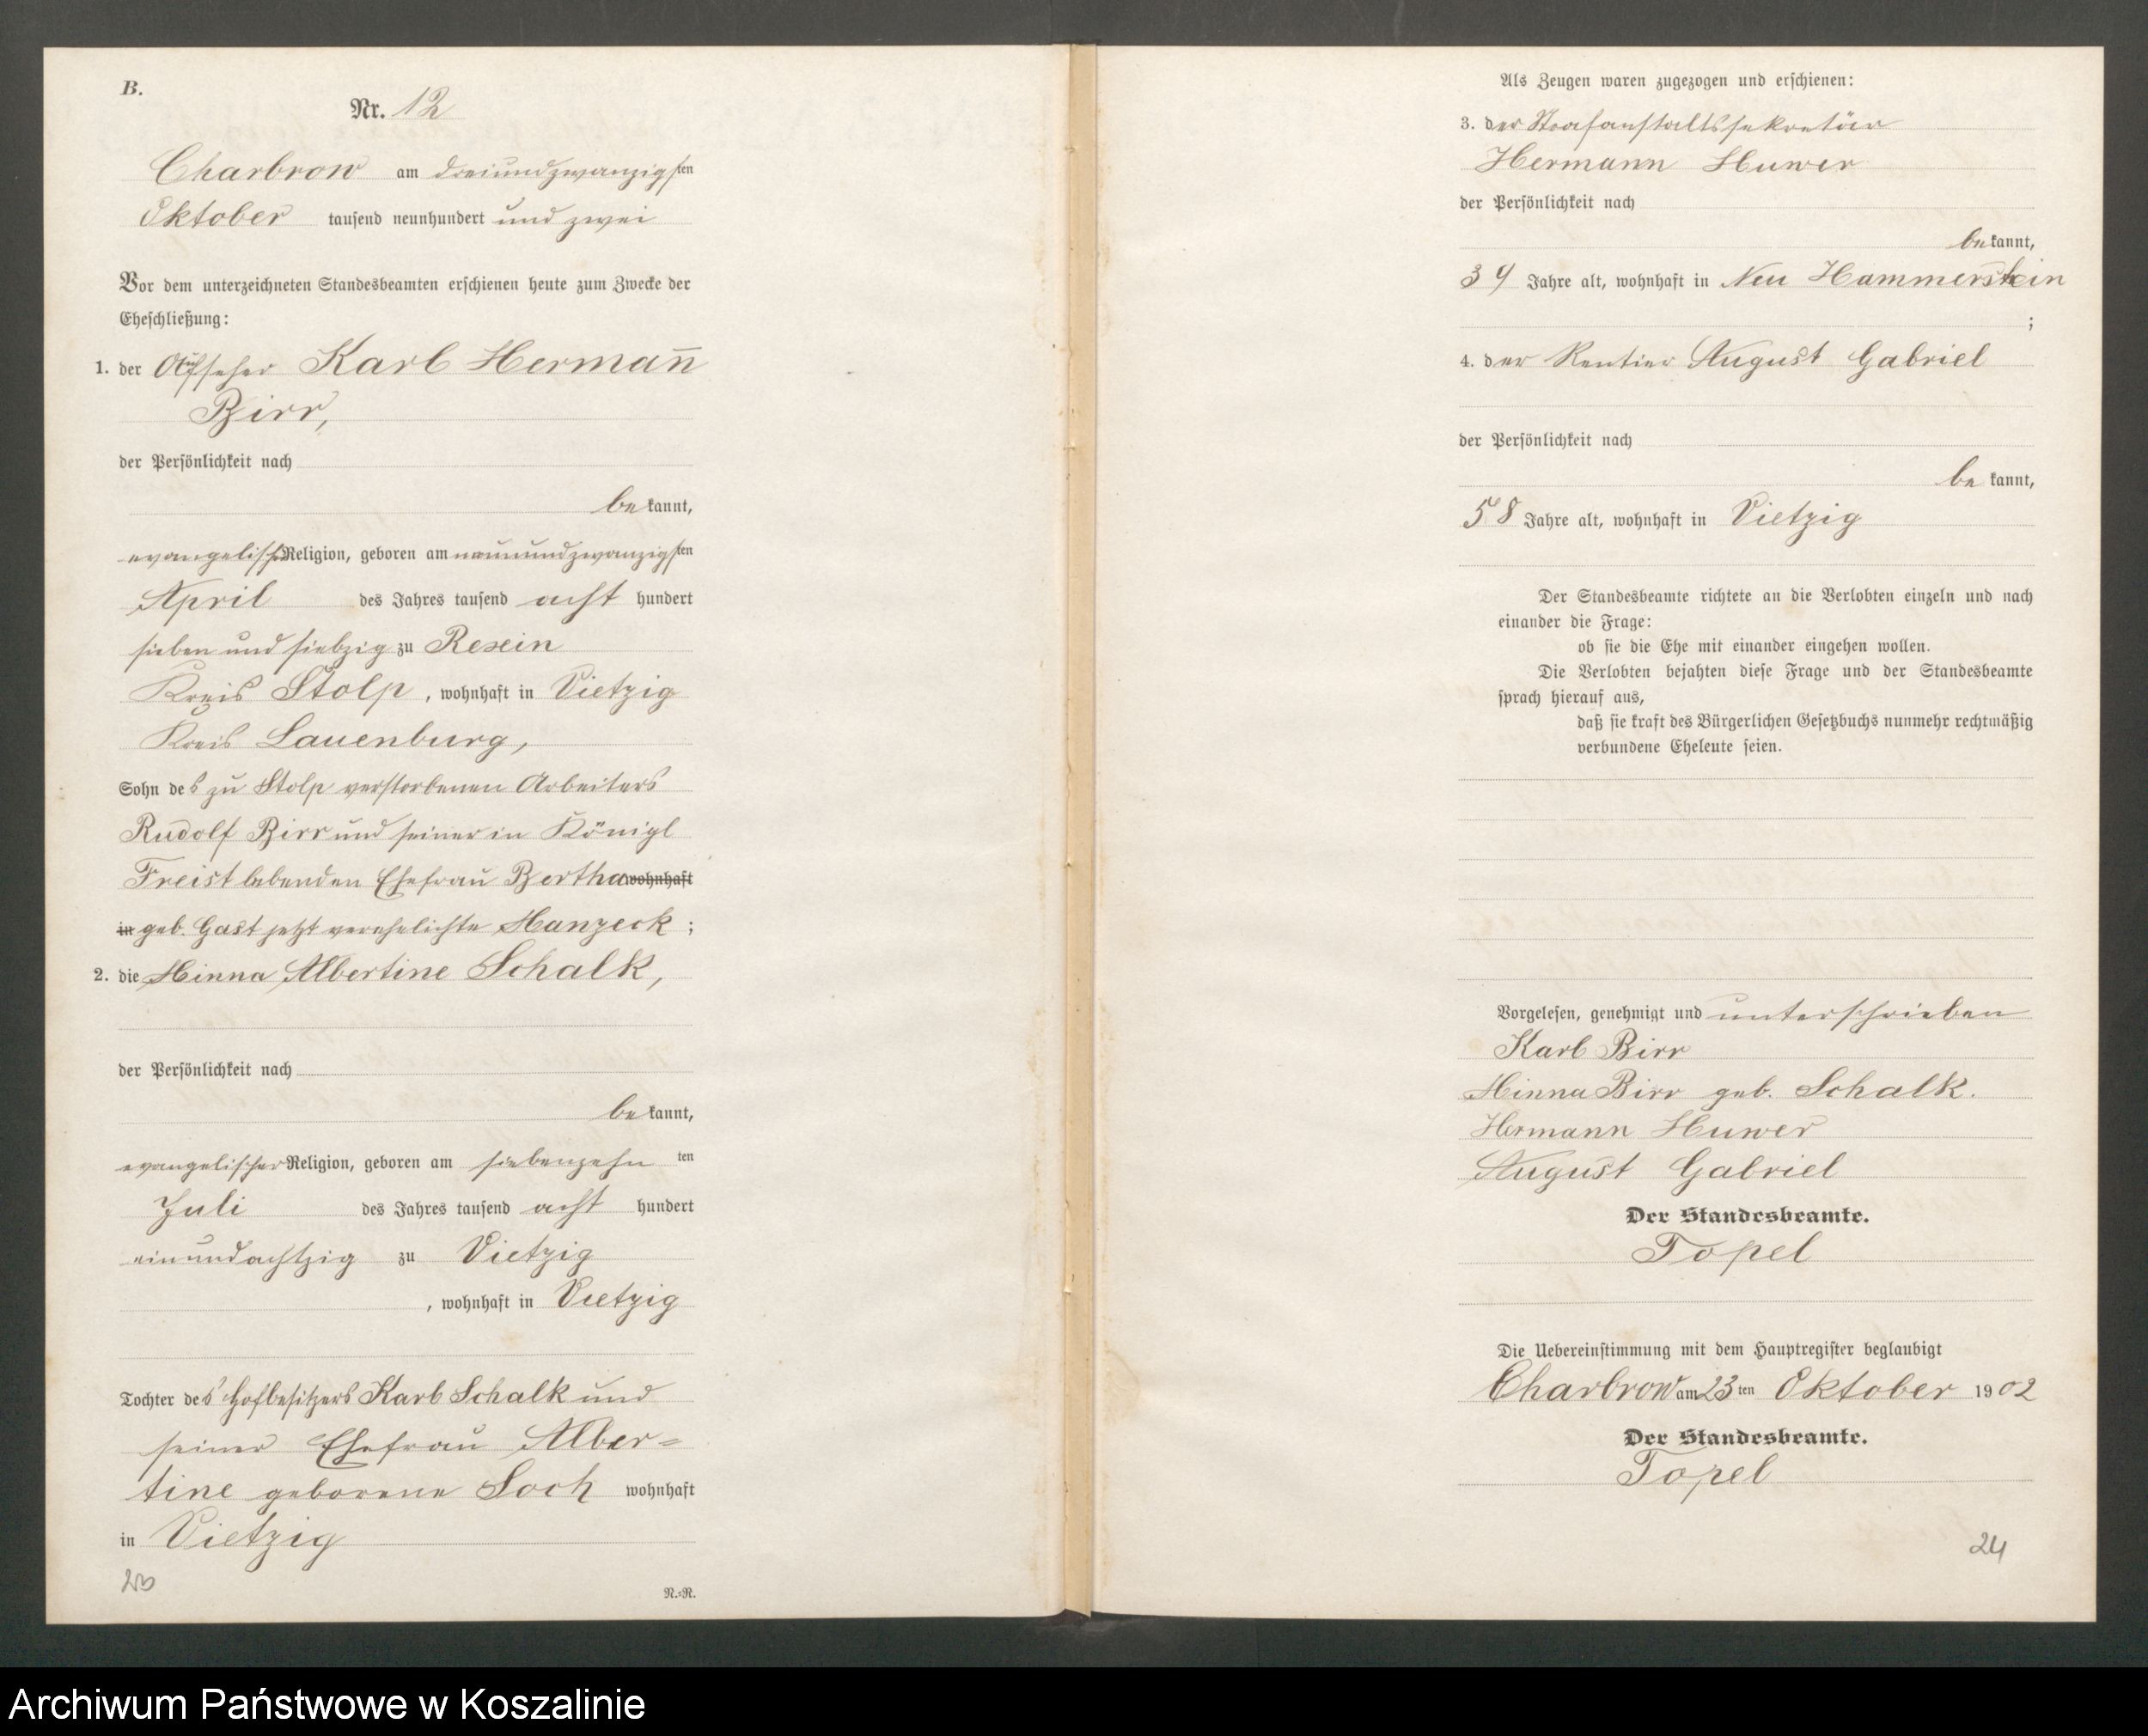 B.
Nr. 12
Charbrow am dreiundzwanzigsten
Oktober tausend neunhundert und zwei
Vor dem unterzeichneten Standesbeamten erschienen heute zum Zwecke der
Eheschließung:
1. der Aufseher Karl Hermann̄
Birr,
der Persönlichkeit nach
be kannt,
evangelischer Religion, geboren am neunundzwanzigsten
April des Jahres tausend acht hundert
sieben und siebzig zu Rexin
Kreis Stolp, wohnhaft in Vietzig
Kreis Lauenburg,
Sohn des zu Stolp verstorbenen Arbeiters
Rudolf Birr und seiner in Königl
Freist lebenden Ehefrau Bertha wohnhaft
in geb. Gast jetzt verehelichte Hanzeck;
2. die Minna Albertine Schalk,
der Persönlichkeit nach
be kannt,
evangelischer Religion, geboren am siebenzehn ten
Juli des Jahres tausend acht hundert
einundachtzig zu Vietzig
, wohnhaft in Vietzig
Tochter des Hofbesitzers Karl Schalk und
seiner Ehefrau Alber=
tine geborene Loch wohnhaft
in Vietzig
N.=R.
Als Zeugen waren zugezogen und erschienen:
3. der Strafanstaltssekretär
Hermann Huwer
der Persönlichkeit nach
be kannt,
39 Jahre alt, wohnhaft in Neu Hammerstein
;
4. der Rentier August Gabriel
der Persönlichkeit nach
be kannt,
58 Jahre alt, wohnhaft in Vietzig
Der Standesbeamte richtete an die Verlobten einzeln und nach
einander die Frage:
ob sie die Ehe mit einander eingehen wollen.
Die Verlobten bejahten diese Frage und der Standesbeamte
sprach hierauf aus,
daß sie kraft des Bürgerlichen Gesetzbuchs nunmehr rechtmäßig
verbundene Eheleute seien.
Vorgelesen, genehmigt und unterschrieben
Karl Birr
Minna Birr geb. Schalk.
Hermann Huwer
August Gabriel
Der Standesbeamte.
Topel
Die Uebereinstimmung mit dem Hauptregister beglaubigt
Charbrow am 23 ten Oktober 1902
Der Standesbeamte.
Topel
24
Archiwum Państwowe w Koszalinie